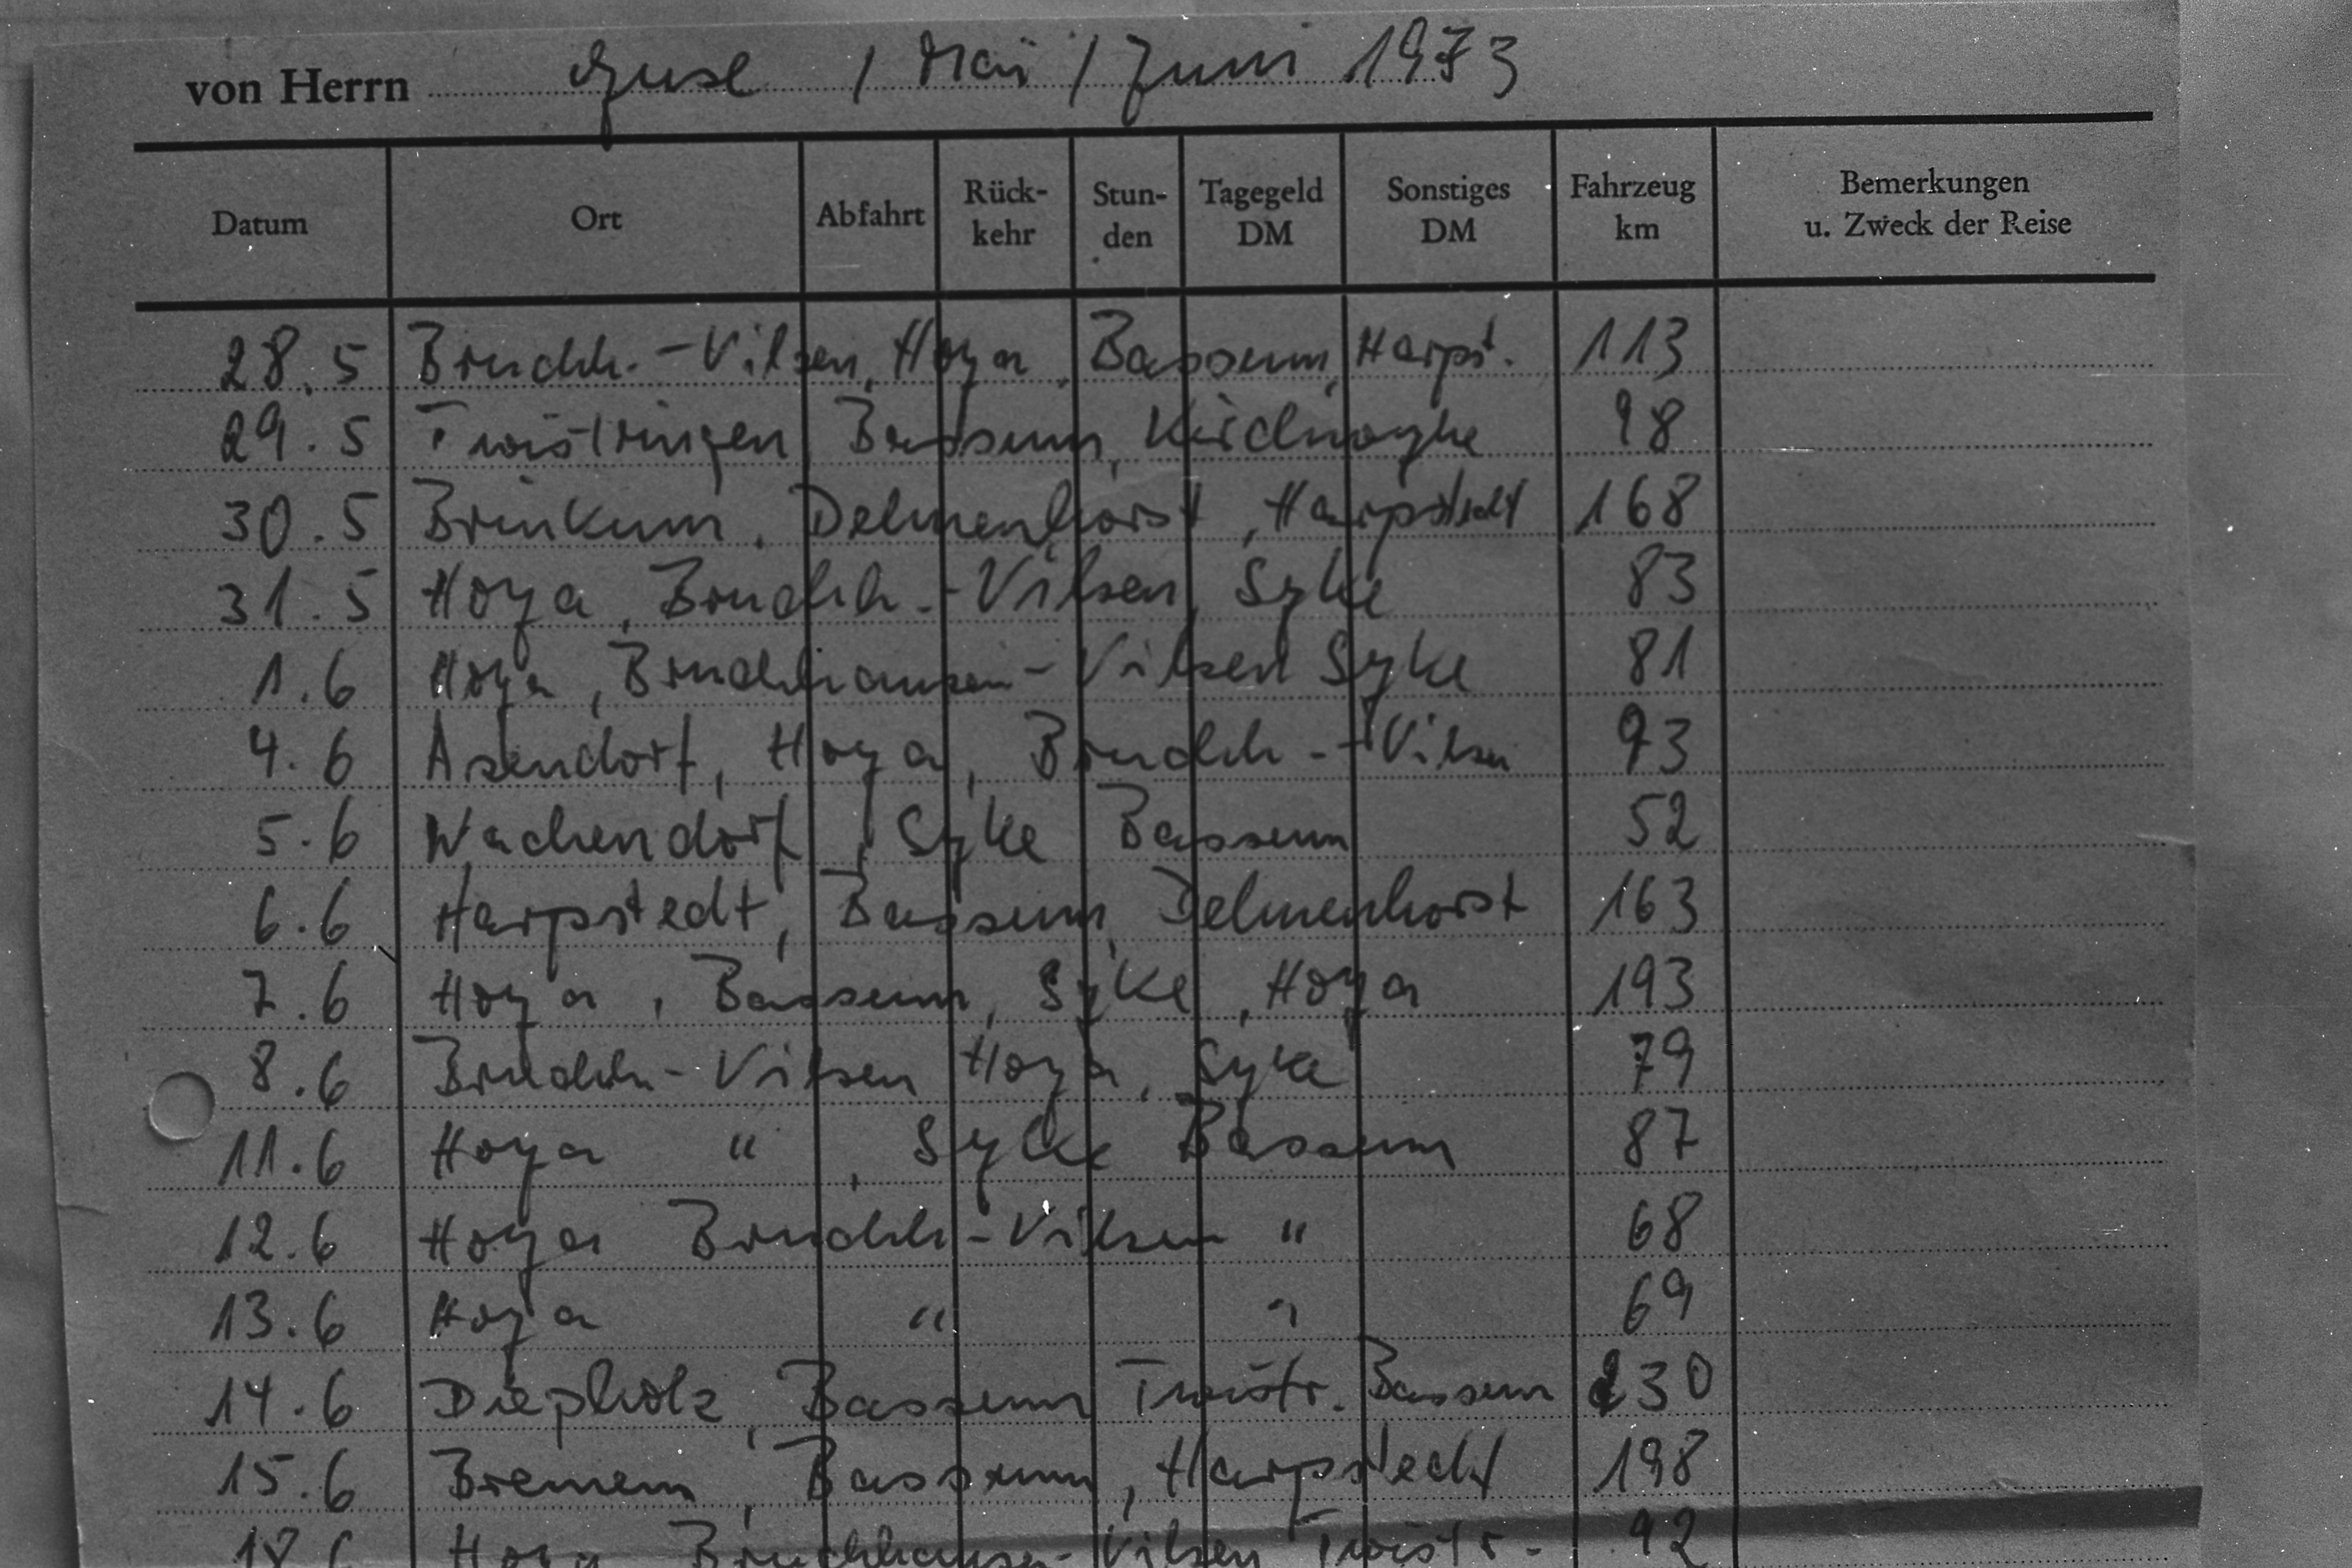 von Herrn Guse / Mai / Juni 1973
Datum Ort Abfahrt Rück-kehr Stun-den Tagegeld DM Sonstiges DM Fahrzeug km Bemerkungen u. Zweck der Reise
28.5 Bruchh.-Vilsen, Hoya, Bassum, Harpst. 113
29.5 Twistringen, Bassum, Kirchweyhe 98
30.5 Brinkum, Delmenhorst, Harpstedt 168
31.5 Hoya, Bruchh.-Vilsen, Syke 83
1.6 Hoya, Bruchhausen-Vilsen Syke 81
4.6 Asendorf, Hoya, Bruchh.-Vilsen 93
5.6 Wachendorf, Syke Bassum 52
6.6 Harpstedt, Bassum, Delmenhorst 163
7.6 Hoya, Bassum, Syke, Hoya 193
8.6 Bruchh-Vilsen Hoya, Syke 79
11.6 Hoya " , Syke Bassum 87
12.6 Hoya Bruchh-Vilsen " 68
13.6 Hoya " " 69
14.6 Diepholz, Bassum Twistr. Bassum 230
15.6 Bremen, Bassum, Harpstedt 198
18.6 Hoya Bruchhausen-Vilsen Twistr. 92